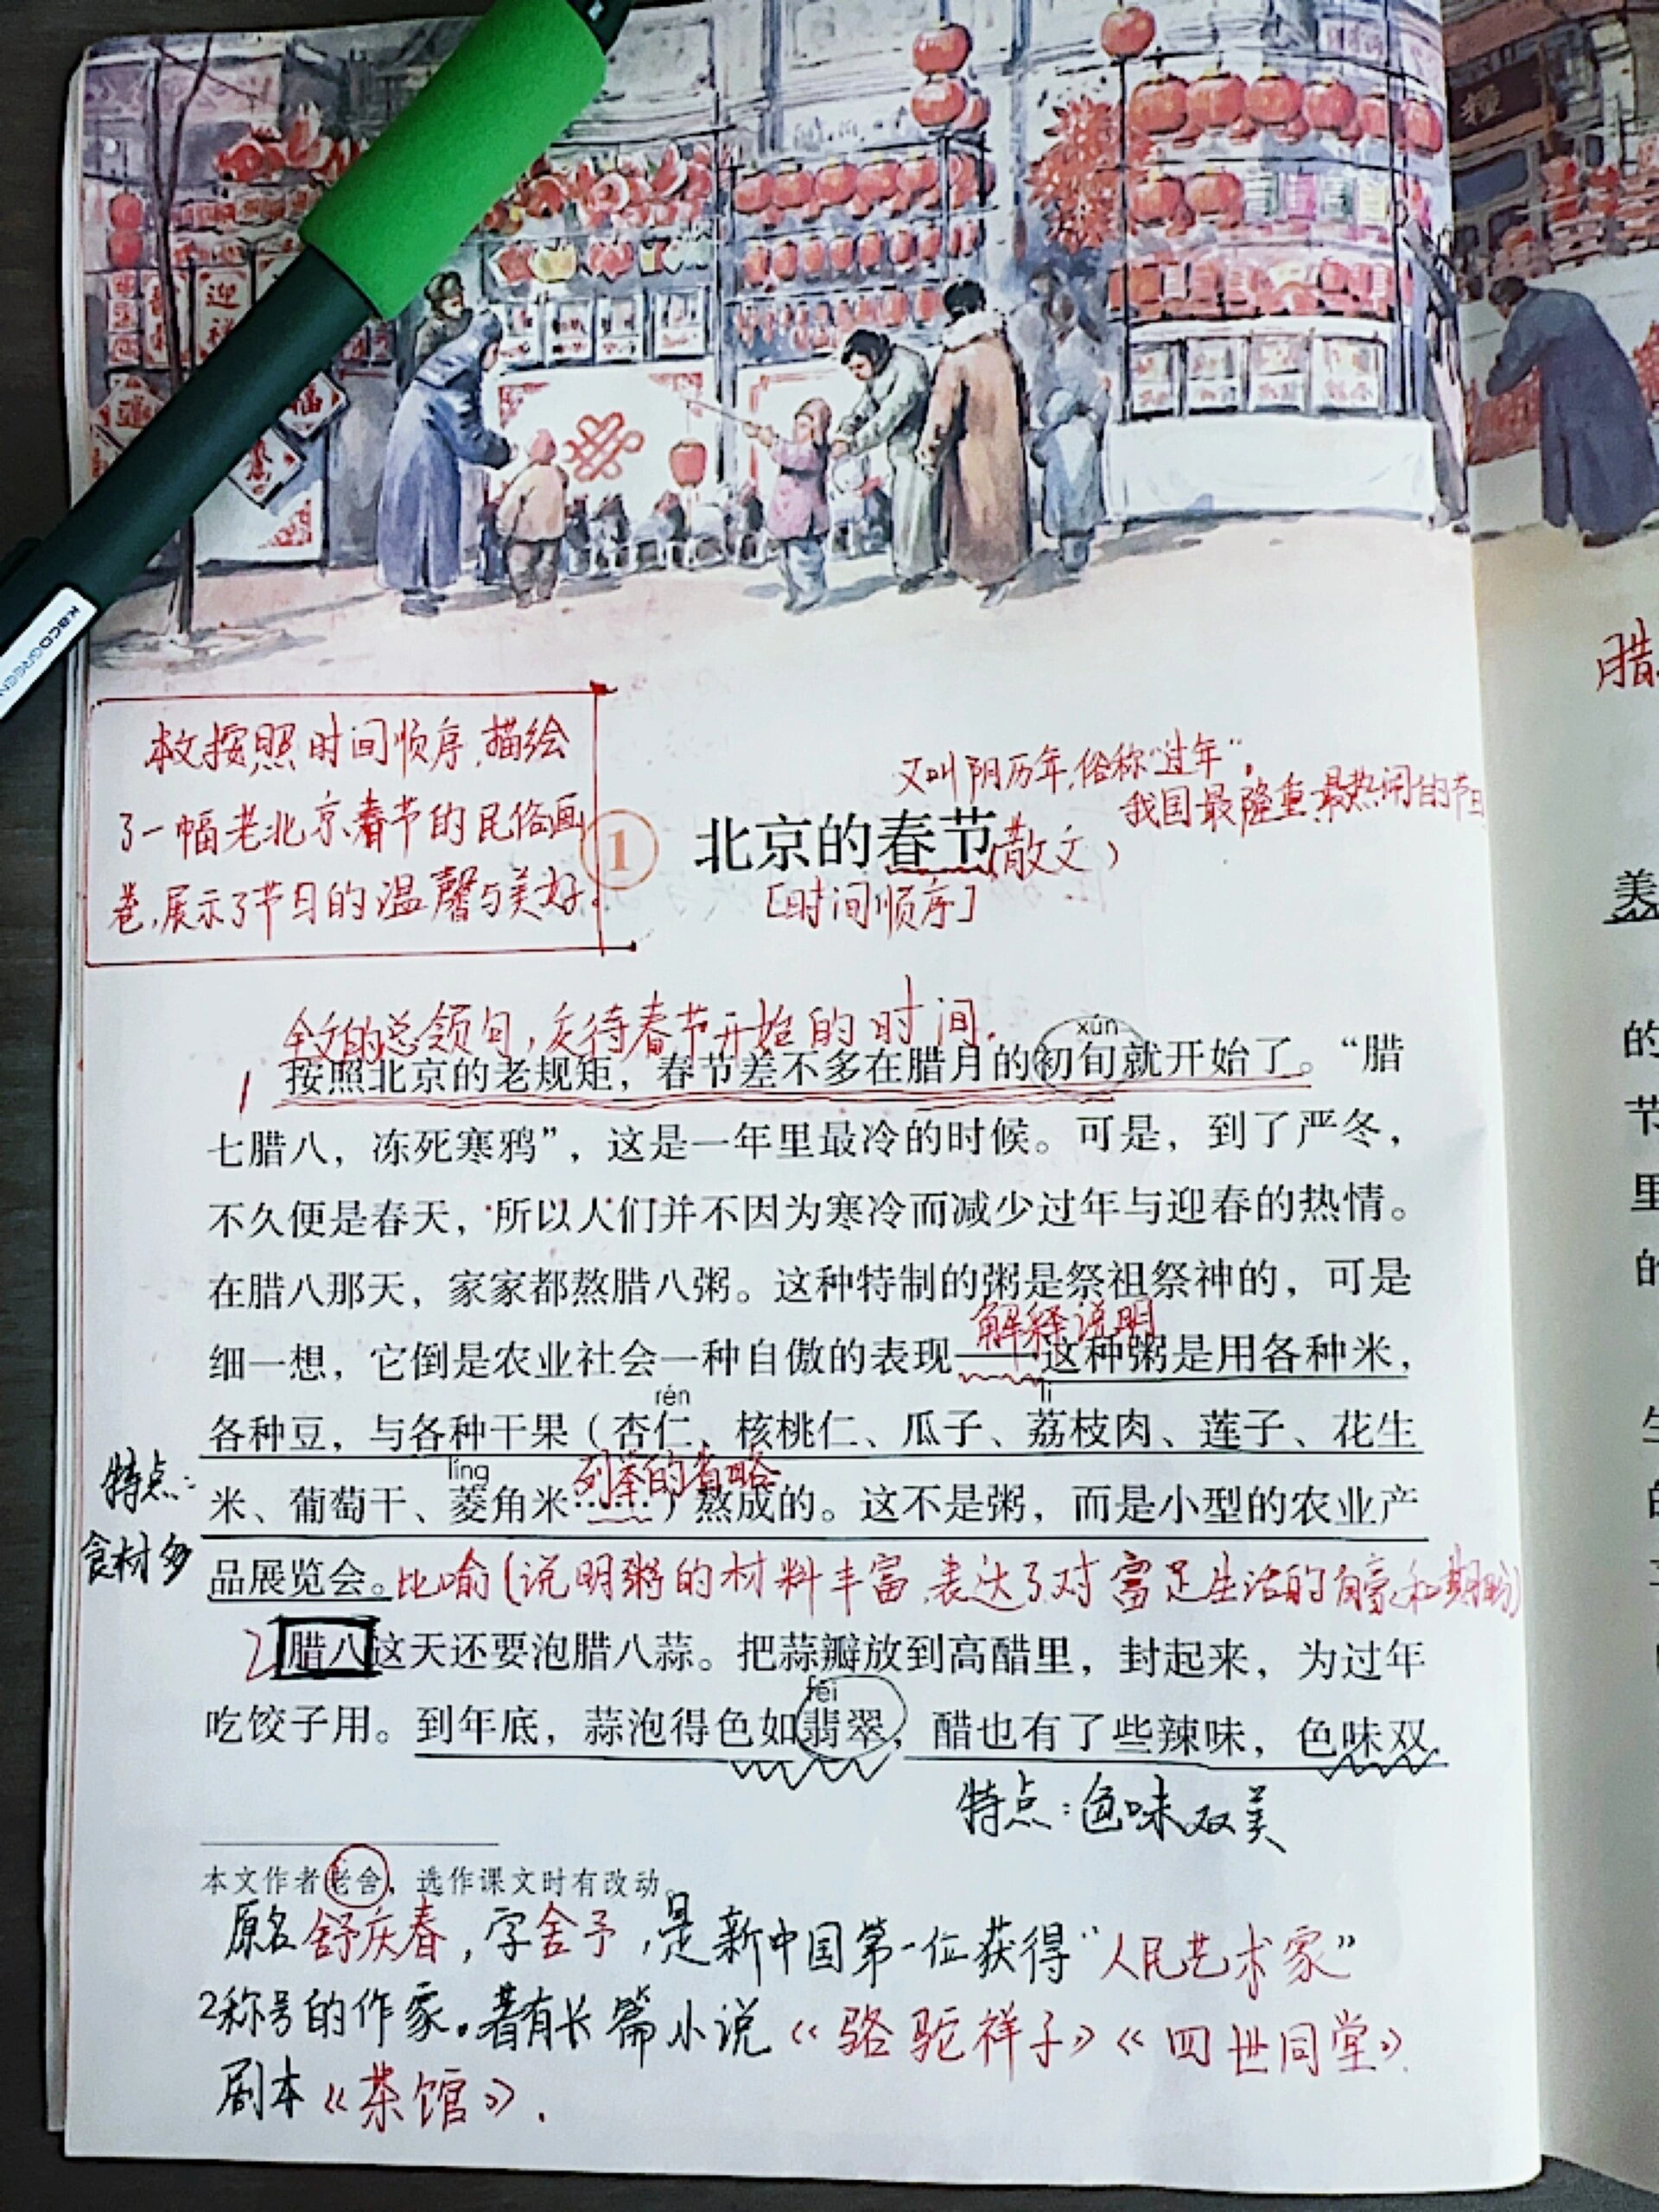 糧
迎
福
本文按照时间顺序,描绘
了一幅老北京春节的民俗画
卷,展示了节日的温馨与美好。
又叫阴历年,俗称“过年”。
我国最隆重、最热闹的节日
1 北京的春节(散文)
[时间顺序]
全文的总领句,交待春节开始的时间.
xún
1 按照北京的老规矩,春节差不多在腊月的初旬就开始了。“腊
七腊八,冻死寒鸦”,这是一年里最冷的时候。可是,到了严冬,
不久便是春天,所以人们并不因为寒冷而减少过年与迎春的热情。
在腊八那天,家家都熬腊八粥。这种特制的粥是祭祖祭神的,可是
解释说明
细一想,它倒是农业社会一种自傲的表现——这种粥是用各种米,
rén lì
各种豆,与各种干果(杏仁、核桃仁、瓜子、荔枝肉、莲子、花生
特点: líng 列举的省略
米、葡萄干、菱角米……)熬成的。这不是粥,而是小型的农业产
食材多
品展览会。比喻(说明粥的材料丰富,表达了对富足生活的自豪和期盼)
2 腊八这天还要泡腊八蒜。把蒜瓣放到高醋里,封起来,为过年
fěi
吃饺子用。到年底,蒜泡得色如翡翠,醋也有了些辣味,色味双
特点:色味双美
本文作者老舍,选作课文时有改动。
原名舒庆春,字舍予,是新中国第一位获得“人民艺术家”
称号的作家。著有长篇小说《骆驼祥子》《四世同堂》.
剧本《茶馆》.
腊
美
的
节
里
的